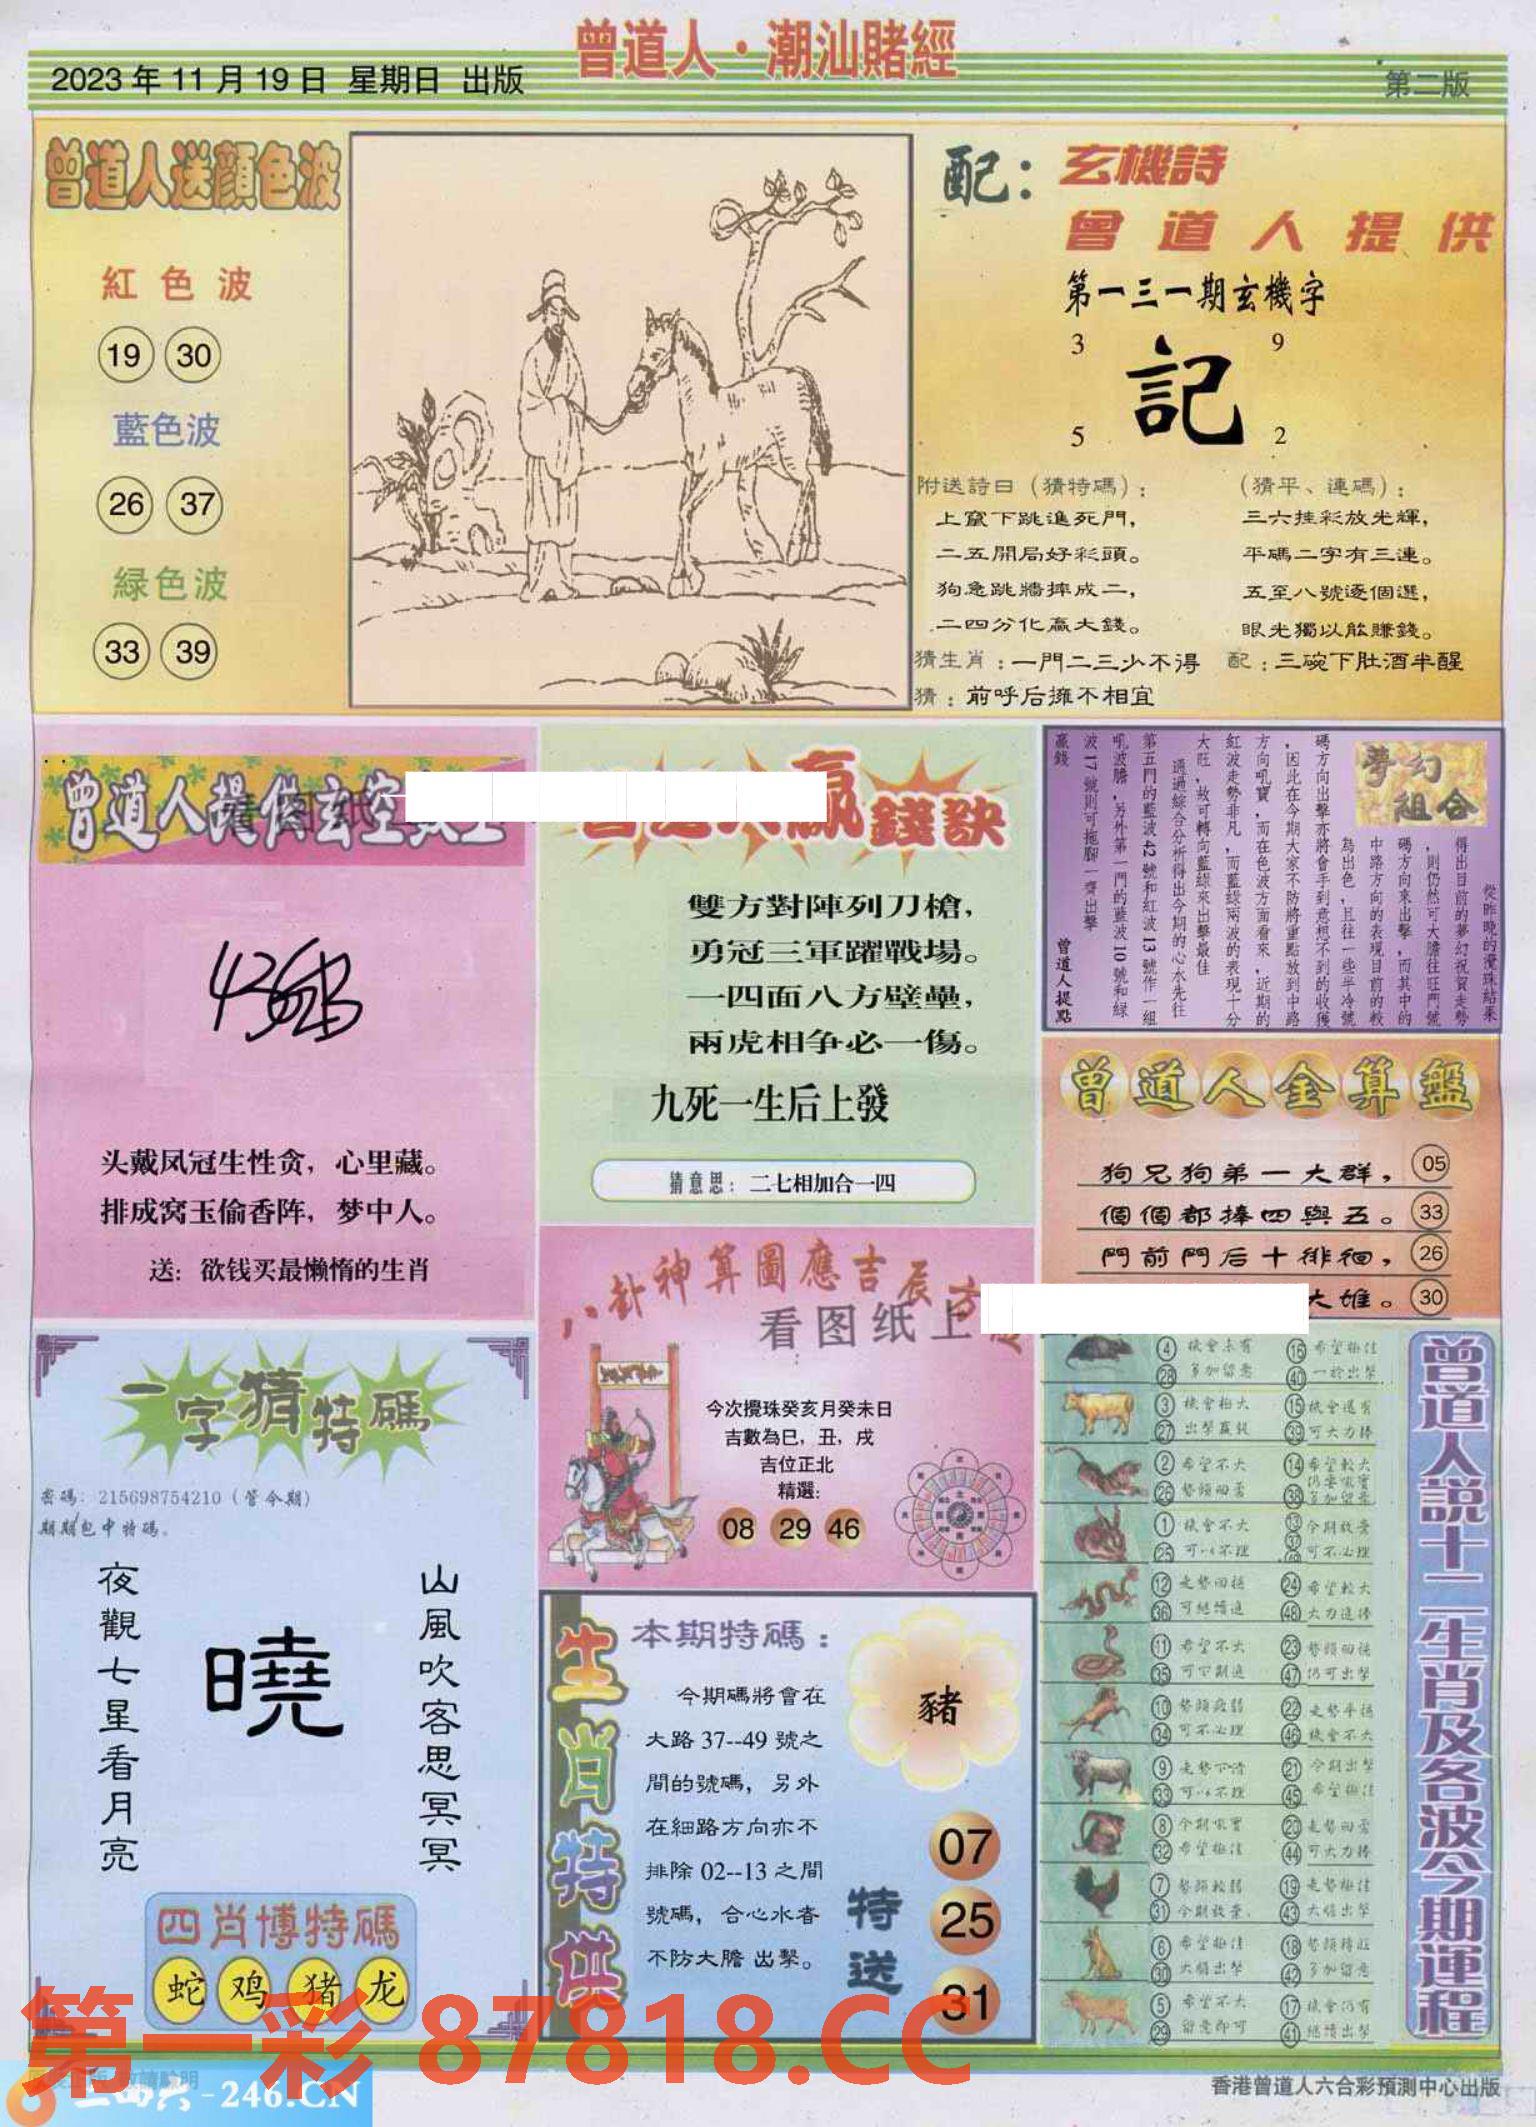 曾道人·潮汕賭經
2023年11月19日 星期日 出版
第二版
曾道人送顏色波
紅色波
19 30
藍色波
26 37
緑色波
33 39
配：
玄機詩
曾道人提供
第一三一期玄機字
3 9
記
5 2
附送詩日（猜特碼）：
上竄下跳進死門，
二五開局好彩頭。
狗急跳牆摔成二，
二四分化贏大錢。
（猜平、連碼）：
三六挂彩放光輝，
平碼二字有三連。
五至八號逐個選，
眼光獨以能賺錢。
猜生肖：一門二三少不得
配：三碗下肚酒半醒
猜：前呼后擁不相宜
曾道人提供玄空
头戴凤冠生性贪，心里藏。
排成窝玉偷香阵，梦中人。
送：欲钱买最懒惰的生肖
贏錢訣
雙方對陣列刀槍，
勇冠三軍躍戰場。
一四面八方壁壘，
兩虎相争必一傷。
九死一生后上發
猜意思：二七相加合一四
夢幻組合
從昨晚的攪珠結果
得出目前的夢幻祝賀走勢
，則仍然可大膽往旺門號
碼方向來出擊，而其中的
中路方向的表現目前的較
為出色，且往一些半冷號
碼方向出擊亦將會手到意想不到的收獲
，因此在今期大家不防將重點放到中路
方向吼寶，而在色波方面看來，近期的
紅波走勢非凡，而藍緑兩波的表現十分
大旺，故可轉向藍緑來出擊最佳
通過綜合分析得出今期的心水先往
第五門的藍波42號和紅波13號作一組
吼波膽，另外第一門的藍波10號和緑
波17號則可拖腳一齊出擊
贏錢
曾道人提點
曾道人金算盤
狗兄狗弟一大群， 05
個個都捧四與五。 33
門前門后十徘徊， 26
大雄。 30
八卦神算圖應吉辰方
看图纸上
今次攪珠癸亥月癸未日
吉數為巳，丑，戌
吉位正北
精選：
08 29 46
一字猜特碼
密碼：215698754210（管今期）
期期包中特碼。
夜觀七星看月亮
曉
山風吹客思冥冥
四肖博特碼
蛇 鸡 猪 龙
生肖特供
本期特碼：
今期碼將會在
大路37--49號之
間的號碼，另外
在細路方向亦不
排除02--13之間
號碼，合心水者
不防大膽出擊。
豬
特送
07
25
31
曾道人説十二生肖及各波今期運程
4 機會未有 16 希望極佳
28 多加留意 40 一於出擊
3 機會極大 15 機會還有
27 出擊贏錢 39 可大力捧
2 希望不大 14 希望較大
26 38
1 機會不大 今期放棄
25 可以不理 可不必理
12 走勢回穩 24 希望較大
36 可繼續追 48 大力追捧
11 希望不大 23 勢頭回穩
35 47 仍可出擊
10 勢頭疲弱 22 走勢平穩
34 可不必理 46 機會不大
9 走勢下滑 21 今期出擊
33 可以不理 45 希望極佳
8 今期吼寶 20
32 希望極佳 44 可大力捧
7 勢頭較弱 19 走勢極佳
31 今期放棄 43 大膽出擊
6 希望極佳 18
30 大膽出擊 42 多加留意
5 希望不大 17 機會仍有
29 留意即可 41 繼續出擊
第一彩 87818.CC
246.CN
香港曾道人六合彩預測中心出版